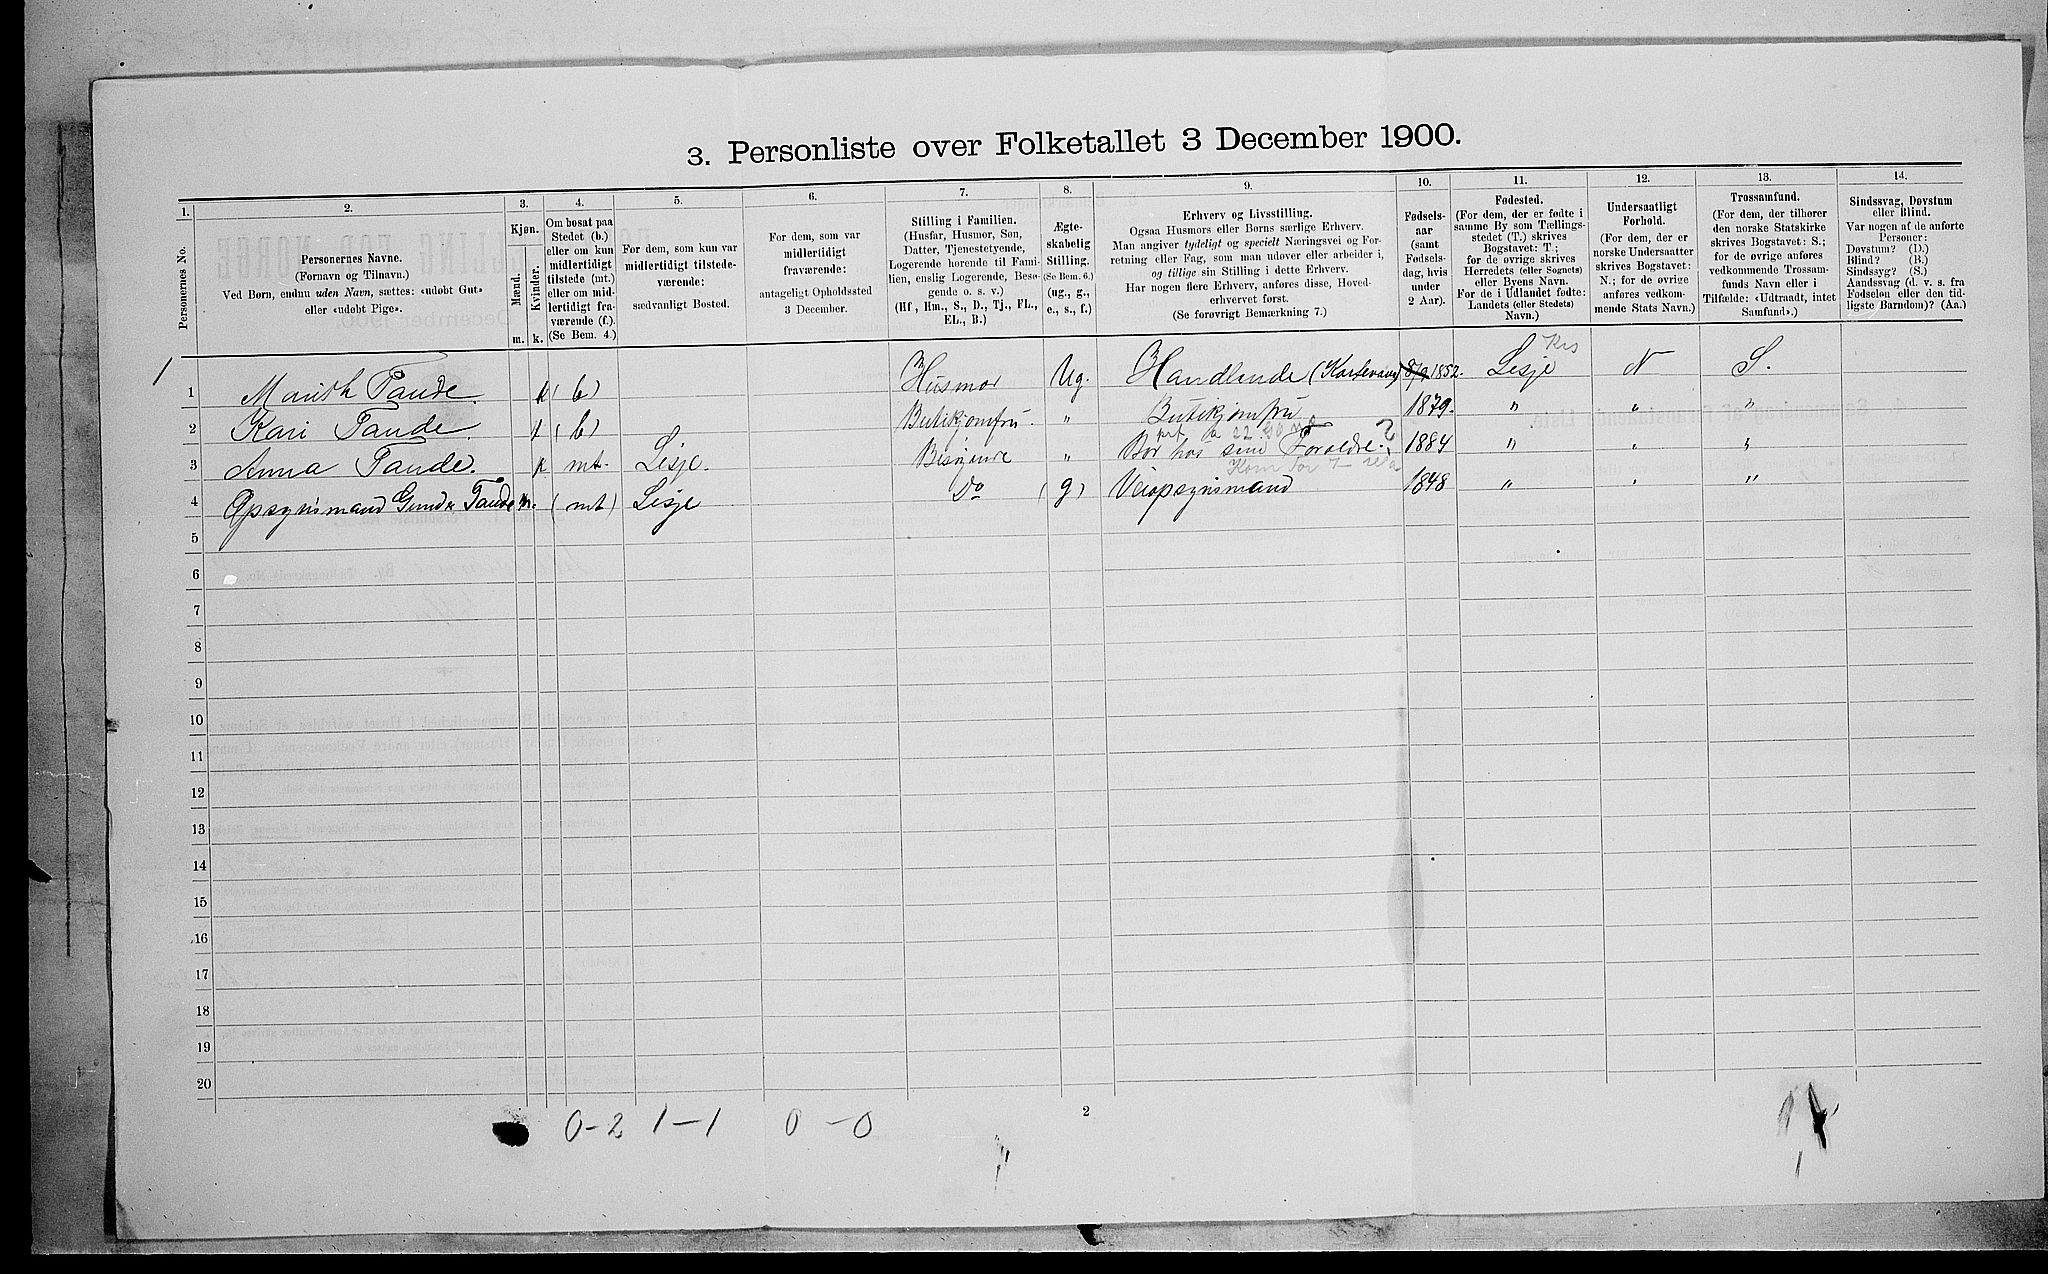 3. Personliste over Folketallet 3 December 1900.
1. 2. 3. 4. 5. 6. 7. 8. 9. 10. 11. 12. 13. 14.
Personernes No.
Personernes Navne.
(Fornavn og Tilnavn.)
Ved Børn, endnu uden Navn, sættes: «udøbt Gut»
eller «udøbt Pige».
Kjøn.
Mænd.
Kvinder.
m. k.
Om bosat paa
Stedet (b.)
eller om kun
midlertidigt
tilstede (mt.)
eller om mid-
lertidigt fra-
værende (f.).
(Se Bem. 4.)
For dem, som kun var
midlertidigt tilstede-
værende:
sædvanligt Bosted.
For dem, som var
midlertidigt
fraværende:
antageligt Opholdssted
3 December.
Stilling i Familien.
(Husfar, Husmor, Søn,
Datter, Tjenestetyende,
Logerende hørende til Fami-
lien, enslig Logerende, Besø-
gende o. s. v.)
(Hf., Hm., S., D., Tj., FL.,
EL., B.)
Ægte-
skabelig
Stilling.
(Se Bem. 6.)
(ug., g.,
e., s., f.)
Erhverv og Livsstilling.
Ogsaa Husmors eller Børns særlige Erhverv.
Man angiver tydeligt og specielt Næringsvei og For-
retning eller Fag, som man udøver eller arbeider i,
og tillige sin Stilling i dette Erhverv.
Har nogen flere Erhverv, anføres disse, Hoved-
erhvervet først.
(Se forøvrigt Bemærkning 7.)
Fødsels-
aar
(samt
Fødsels-
dag, hvis
under
2 Aar).
Fødested.
(For dem, der er fødte i
samme By som Tællings-
stedet (T.) skrives
Bogstavet: T.;
for de øvrige skrives
Herredets (eller Sognets)
eller Byens Navn.
For de i Udlandet fødte:
Landets (eller Stedets)
Navn.)
Undersaatligt
Forhold.
(For dem, der er
norske Undersaatter
skrives Bogstavet:
N.; for de øvrige
anføres vedkom-
mende Stats Navn.)
Trossamfund.
(For dem, der tilhører
den norske Statskirke
skrives Bogstavet: S.;
for de øvrige anføres
vedkommende Trossam-
funds Navn eller i
Tilfælde: «Udtraadt, intet
Samfund».)
Sindssvag, Døvstum
eller Blind.
Var nogen af de anførte
Personer:
Døvstum? (D.)
Blind? (B.)
Sindssyg? (S.)
Aandssvag (d. v. s. fra
Fødselen eller den tid-
ligste Barndom)? (Aa.)
1 Marith Tande. k (b) Husmor Ug. Handlende 1852. Lesje N S.
2 Kari Tande. k (b) Butikjomfru. " Butikjomfru 1879. " " "
3 Anna Tande. k mt. Lesje. Besøgende " Bor hos sine Forældre. 1884 " " "
4 Opsynsmand Tande m. (mt) Lesje Do (g) Veiopsynsmand 1848 " " "
5
6
7
8
9
10
11
12
13
14
15
16
17
18
19
20
0-2 1-1 0-0
2